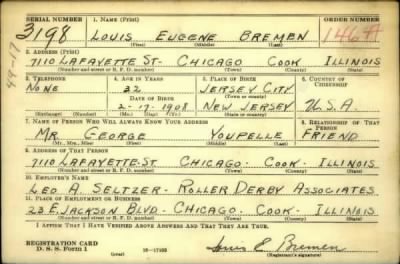 SERIAL NUMBER 1. NAME (Print) ORDER NUMBER
3198 LOUIS EUGENE BREMEN 1464A
(First) (Middle) (Last)
49-17
2. ADDRESS (Print)
7110 LAFAYETTE ST- CHICAGO COOK ILLINOIS
(Number and street or R. F. D. number) (Town) (County) (State)
3. TELEPHONE 4. AGE IN YEARS 5. PLACE OF BIRTH 6. COUNTRY OF CITIZENSHIP
NONE 32 JERSEY CITY
DATE OF BIRTH (Town or county)
2-17-1908 NEW JERSEY U.S.A.
(Exchange) (Number) (Mo.) (Day) (Yr.) (State or country)
7. NAME OF PERSON WHO WILL ALWAYS KNOW YOUR ADDRESS 8. RELATIONSHIP OF THAT PERSON
MR. GEORGE YOUPELLE FRIEND
(Mr., Mrs., Miss) (First) (Middle) (Last)
9. ADDRESS OF THAT PERSON
7110 LAFAYETTE-ST CHICAGO- COOK- ILLINOIS
(Number and street or R. F. D. number) (Town) (County) (State)
10. EMPLOYER'S NAME
LEO A. SELTZER- ROLLER DERBY ASSOCIATES
11. PLACE OF EMPLOYMENT OR BUSINESS
23 E. JACKSON BLVD- CHICAGO- COOK- ILLINOIS
(Number and street or R. F. D. number) (Town) (County) (State)
I AFFIRM THAT I HAVE VERIFIED ABOVE ANSWERS AND THAT THEY ARE TRUE.
REGISTRATION CARD
D. S. S. Form 1 (over) Louis E. Bremen
(Registrant's signature)